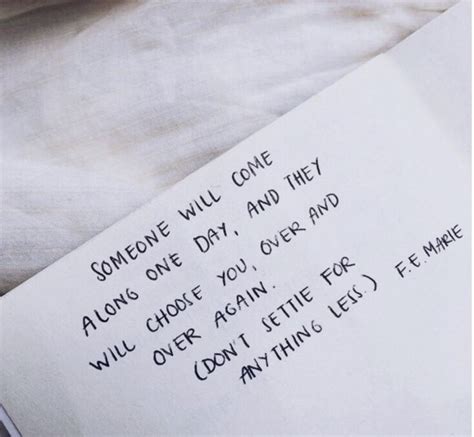 SOMEONE WILL COME
ALONG ONE DAY, AND THEY
WILL CHOOSE YOU, OVER AND
OVER AGAIN.
(DON'T SETTLE FOR
ANYTHING LESS.) F.E. MARIE